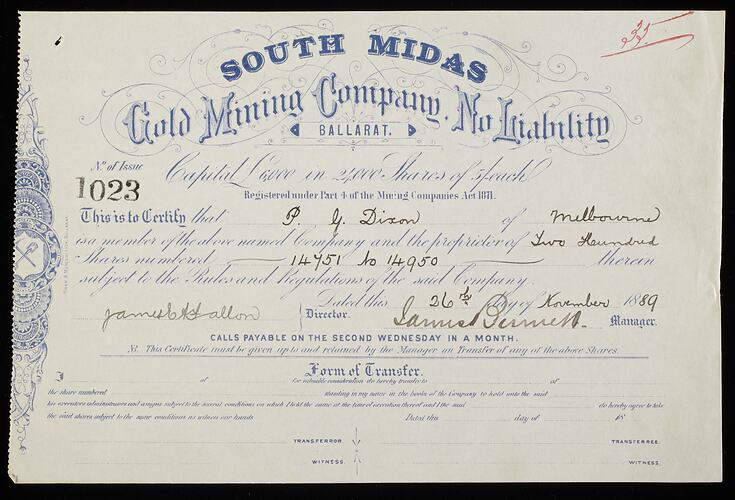 35
SOUTH MIDAS
Gold Mining Company. No Liability
BALLARAT.
No. of Issue
1023
Capital £6,000 in 24,000 Shares of 5/- each
Registered under Part 4 of the Mining Companies Act 1871.
This is to Certify that P. G. Dixon of Melbourne
is a member of the above named Company and the proprietor of Two Hundred
Shares numbered 14751 to 14950 therein
subject to the Rules and Regulations of the said Company.
Dated this 26th day of November 1889
James Fallon Director. James Bennett. Manager.
CALLS PAYABLE ON THE SECOND WEDNESDAY IN A MONTH.
NB. This Certificate must be given up to and retained by the Manager on Transfer of any of the above Shares.
Form of Transfer.
I of for valuable consideration do hereby transfer to of
the share numbered standing in my name in the books of the Company to hold unto the said
his executors administrators and assigns subject to the several conditions on which I held the same at the time of execution thereof and I the said do hereby agree to take
the said shares subject to the same conditions as witness our hands Dated this day of 18
TRANSFERROR. TRANSFEREE.
WITNESS. WITNESS.